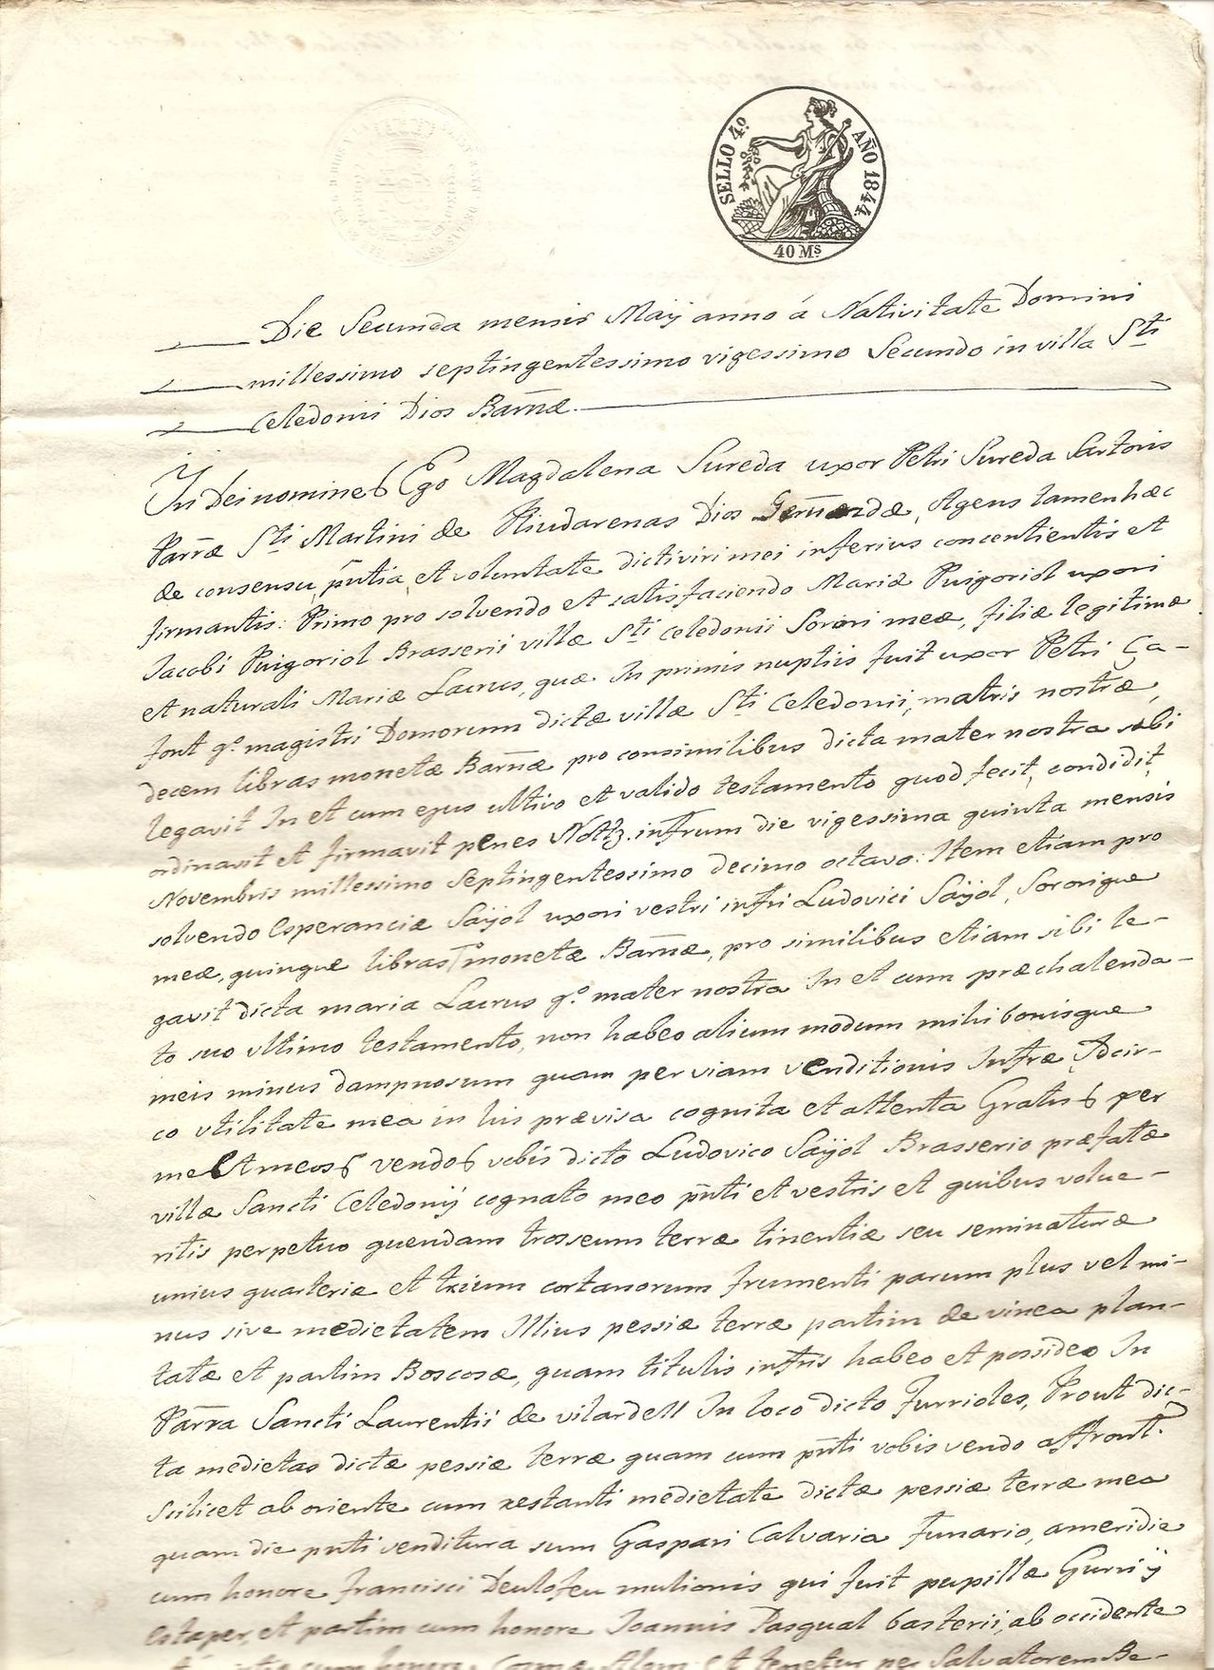 SELLO 4º AÑO 1844.
40 Ms
Die Secunda mensis Maÿ anno á Nativitate Domini
millessimo septingentessimo vigessimo Secundo in villa Sti
Celedonii Dios Barñæ.
In Dei nomine Ego Magdalena Sureda uxor Petri Sureda Sartoris
Parræ Sti Martini de Riudarenas Dios Gerundæ, Agens tamen hæc
de consensu, p̃ntia, et voluntate dicti viri mei inferius concentientis et
firmantis: Primo pro solvendo et satisfaciendo Mariæ Puigoriol uxori
Jacobi Puigoriol Brasserii villæ Sti Celedonii Sorori meæ, filiæ legitimæ
et naturali Mariæ Lacrus, quæ In primis nuptiis fuit uxor Petri Ça-
font qº magistri Domorum dictæ villæ Sti Celedonii, matris nostræ,
decem libras monetæ Barñæ pro consimilibus dicta mater nostra sibi
legavit In et cum ejus ultivo et valido testamento quod fecit, condidit,
ordinavit et firmavit penes Nottz. infrum die vigessima quinta mensis
Novembris millessimo Septingentessimo decimo octavo: Item etiam pro
solvendo Esperanciæ Saÿol uxori vestri infri Ludovici Saÿol, Sororique
meæ, quinque libras monetæ Barñæ, pro similibus etiam sibi le-
gavit dicta maria Lacrus qº mater nostra In et cum præchalenda-
to suo ultimo testamento, non habeo alium modum mihi bonisque
meis minus dampnosum quam per viam venditionis Infræ, Idcir-
co utilitate mea in his prævisa cognita et attenta Gratis per
me Et meos vendo vobis dicto Ludovico Saÿol Brasserio præfatæ
villæ Sancti Celedonÿ cognato meo p̃nti et vestris et quibus volue-
ritis perpetuo quendam trosseum terræ tinentiæ seu seminaturæ
unius quarteriæ et trium cortanorum frumenti parum plus vel mi-
nus sive medietatem Illius pessiæ terræ partim de vinea plan-
tatæ et partim Boscosæ, quam titulis infris habeo et possideo In
Parra Sancti Laurentii de vilardell In loco dicto Furrioles, Prout dic-
ta medietas dictæ pessiæ terræ quam cum p̃nti vobis vendo affront.
Scilicet ab oriente cum restanti medietate dictæ pessiæ terræ mea
quam die p̃nti venditura sum Gaspari Calvaria funario, a meridie
cum honore Francisci Deulofeu mulionis qui fuit pupillæ Gurriÿ
Estaper, et partim cum honore Joannis Pasqual basterii, ab occidente
cum honore Cosmæ Alom et tenetur per Salvatorem Be-